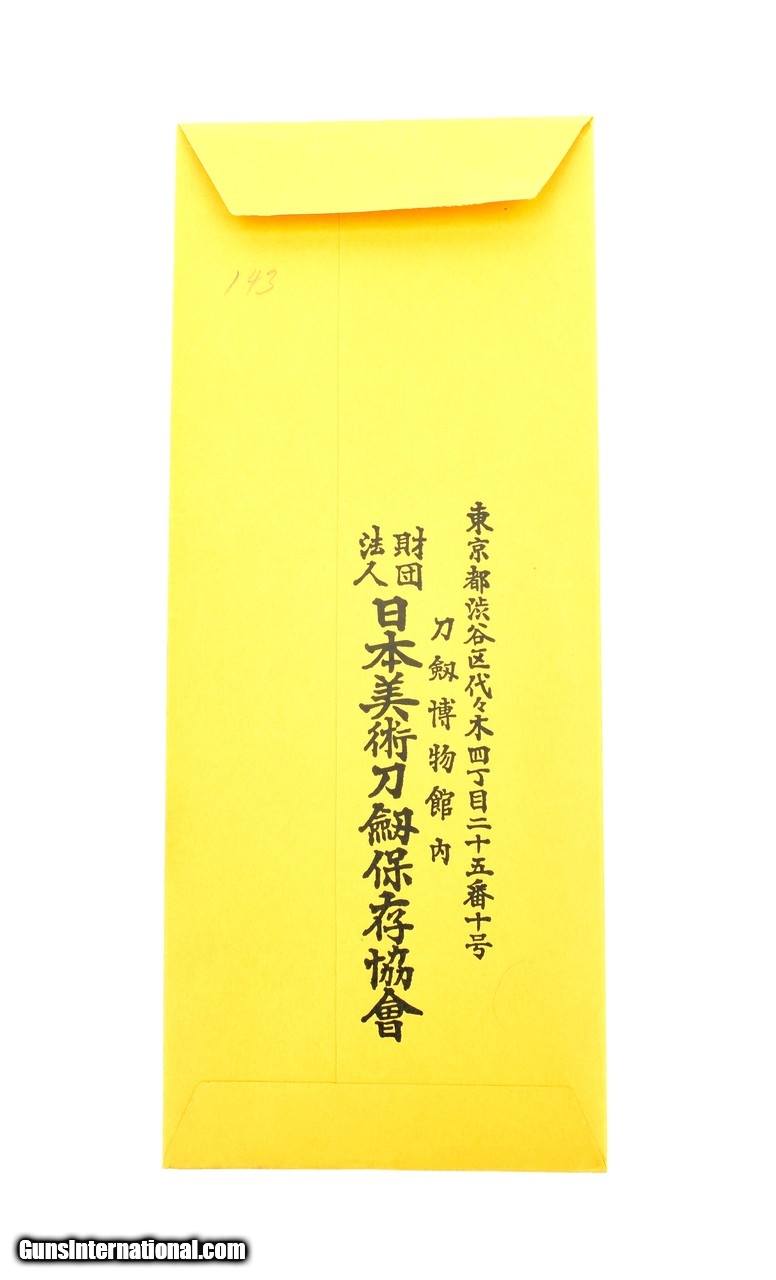 143
東京都渋谷区代々木四丁目二十五番十号
刀劔博物館内
財団
法人
日本美術刀劔保存協會
GunsInternational.com